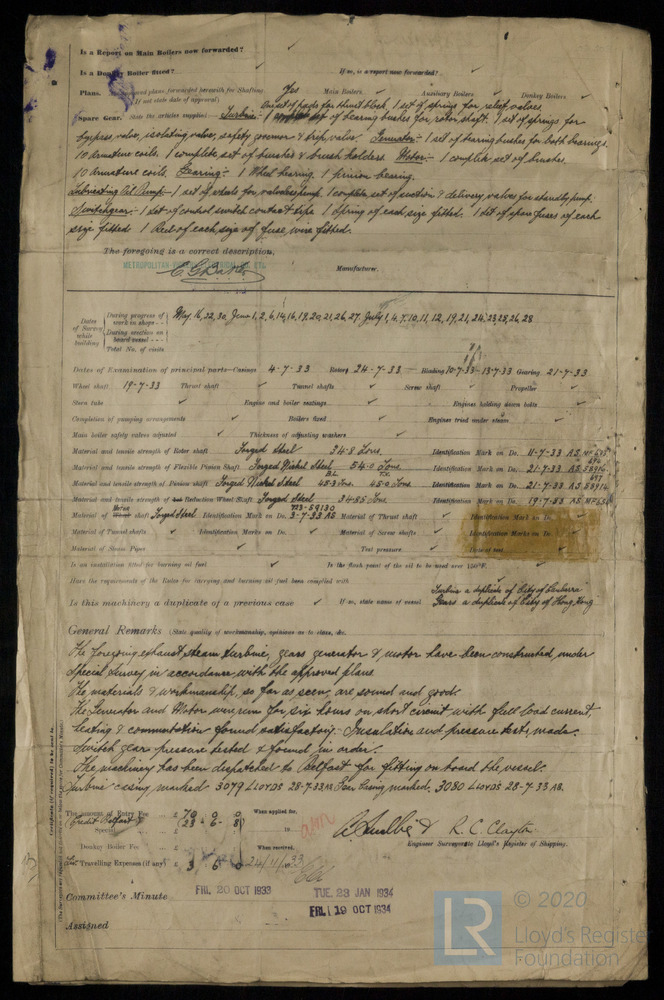 Is a Report on Main Boilers now forwarded? ✓
Is a Donkey Boiler fitted? ✓ If so, is a report now forwarded? ✓
Plans. plans forwarded herewith for Shafting Yes Main Boilers ✓ Auxiliary Boilers ✓ Donkey Boilers ✓
(If not state date of approval)
One set of pads for thrust block, 1 set of springs for relief valves.
Spare Gear. State the articles supplied:— Turbine:- 1 set of bearing bushes for rotor shaft. 1 set of springs for
bypass valve, isolating valve, safety governor & trip valve. Generator:- 1 set of bearing bushes for both bearings.
10 Armature coils. 1 complete set of brushes & brush holders. Motor:- 1 complete set of brushes.
10 Armature coils. Gearing:- 1 Wheel bearing. 1 pinion bearing.
Lubricating Oil Pump:- 1 set of wheels for pump. 1 complete set of suction & delivery valves for standby pump.
Switchgear:- 1 set of control switch contact tips 1 Spring of each size fitted. 1 set of spare fuses of each
size fitted 1 Reel of each size of fuse wire fitted.
The foregoing is a correct description,
METROPOLITAN-
Manufacturer.
Dates of Survey while building
During progress of work in shops - - May 16, 22, 30, June 1, 2, 6, 14, 16, 19, 20, 21, 26, 27. July 1, 4, 7, 10, 11, 12, 19, 21, 24, 25, 26, 28
During erection on board vessel - - -
Total No. of visits
Dates of Examination of principal parts—Casings 4-7-33 Rotors 24-7-33 Blading 10-7-33 – 13-7-33 Gearing 21-7-33
Wheel shaft 19-7-33 Thrust shaft ✓ Tunnel shafts ✓ Screw shaft ✓ Propeller ✓
Stern tube ✓ Engine and boiler seatings ✓ Engines holding down bolts ✓
Completion of pumping arrangements ✓ Boilers fixed ✓ Engines tried under steam ✓
Main boiler safety valves adjusted ✓ Thickness of adjusting washers ✓
Material and tensile strength of Rotor shaft Forged Steel 34·8 Tons. Identification Mark on Do. 11-7-33 AS
Material and tensile strength of Flexible Pinion Shaft Forged Nickel Steel 54·0 Tons Identification Mark on Do. 21-7-33 AS
Material and tensile strength of Pinion shaft Forged Nickel Steel 45·3 Tons. 45·0 Tons Identification Mark on Do. 21-7-33 AS
Material and tensile strength of Reduction Wheel Shaft Forged Steel 34·85 Tons. Identification Mark on Do. 19-7-33 AS
Material of Motor shaft Forged Steel Identification Mark on Do. 3-7-33 AS Material of Thrust shaft ✓ Identification Mark on Do. ✓
Material of Tunnel shafts ✓ Identification Marks on Do. ✓ Material of Screw shafts ✓ Identification Marks on Do. ✓
Material of Steam Pipes ✓ Test pressure ✓ Date of test ✓
Is an installation fitted for burning oil fuel ✓ Is the flash point of the oil to be used over 150°F. ✓
Have the requirements of the Rules for carrying and burning oil fuel been complied with ✓
Turbine a duplicate of City of Canberra
Is this machinery a duplicate of a previous case ✓ If so, state name of vessel Gears a duplicate of City of Hong Kong
General Remarks (State quality of workmanship, opinions as to class, &c.
The foregoing exhaust steam turbine, gears generator & motor have been constructed under
Special Survey in accordance with the approved plans
The materials & workmanship, so far as seen, are sound and good.
The Generator and Motor were run for six hours on short circuit with full load current,
heating & commutation found satisfactory. Insulation and pressure tests made.
Switch gear pressure tested & found in order.
The machinery has been dispatched to Belfast for fitting on board the vessel.
Turbine casing marked 3079 LLOYDS 28-7-33 AS Gear Casing marked. 3080 LLOYDS 28-7-33 AS.
Certificate (if required) to be sent to
The amount of Entry Fee £ 70 0 0 When applied for,
Credit Belfast £ 23 - 6 - 8
Special £ 19
Donkey Boiler Fee £ When received,
Travelling Expenses (if any) £ 3 6 0 24/11/33
R. C. Clayton
Engineer Surveyor to Lloyd's Register of Shipping.
Committee's Minute FRI. 20 OCT 1933 TUE. 23 JAN 1934
FRI. 19 OCT 1934
Assigned
LR © 2020
Lloyd's Register
Foundation